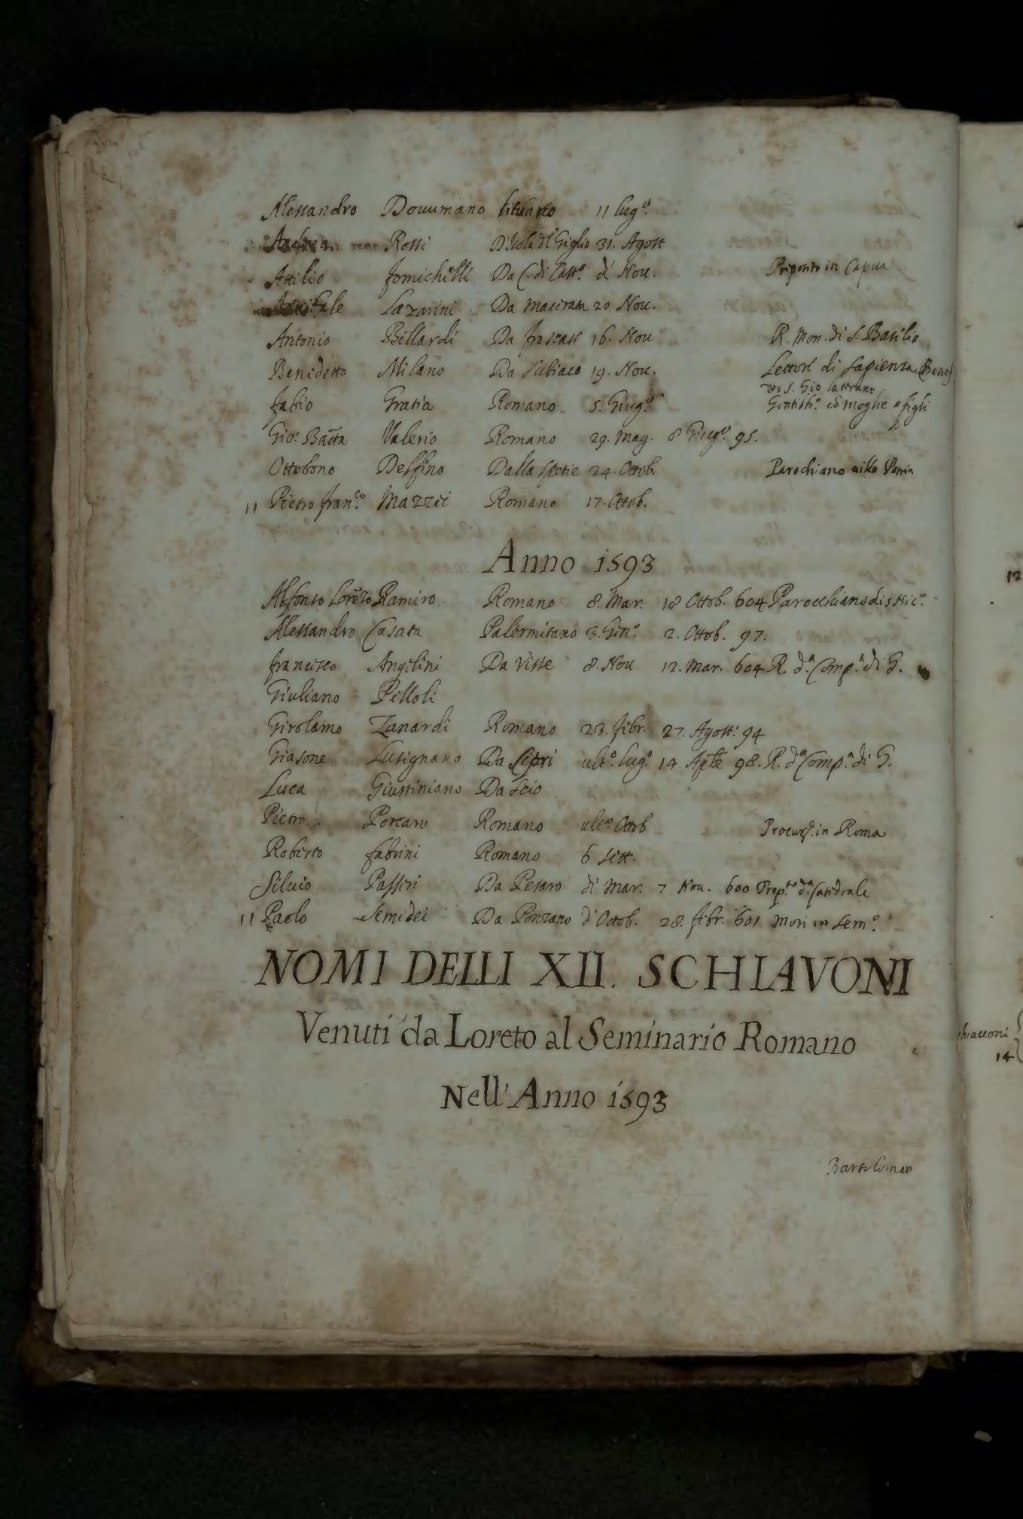 Alessandro Douumano 11 lug.º
Andrea Rossi D'Isola dl Giglio 31. Agost
Attilio fomichelli Da C. di Cast.º di Nou. Preposto in Capua
Lazarini Da Macerata 20 Nou.
Antonio Billardi Da frascati 16. Nou R. Mon. di S. Basilio
Benedetto Milano Da Subiaco 19. Nou. Lettore di Sapienza Benef
di S. Gio Laterano
fabio Gratia Romano 5. Giug.º Gentilh.º cō moglie e figli
Gio: Batta Valerio Romano 29. Mag. 8 Giug.º 95.
Ottobono Delfino Dalla Spetie 24 Ottob. Parochiano alla
11 Pietro fran.co Mazzei Romano 17. Ottob.
Anno 1593
Alfonso Lorēzo Ramiro Romano 8. Mar. 18 Ottob. 604 Parocchiano di s Nic.º
Alessandro Casata Palermitano 3. Gen.º 2. Ottob. 97.
francisco Angelini Da Visse 8. Nou 12. Mar. 604 R. d.ª Comp.ª di G.
Giuliano Pelloli
Girolamo Zanardi Romano 23. febr. 27. Agost: 94
Giasone Lusignano Da Cipri ult.º lug.º 14. Aple 98. R. d.ª Comp.ª di G.
Luca Giustiniano Da Scio
Pietro Porcaro Romano ult.º Ottob Procur. in Roma
Roberto fabrini Romano 6 Sett.
Siluio Passeri Da Pesaro di Mar. 7 Nou. 600 Prep.to d.ª Catedrale
11 Paolo Semidei Da Ponzano d'Ottob. 28. febr. 601 Mori in Sem.º
NOMI DELLI XII. SCHIAVONI
Venuti da Loreto al Seminario Romano
Nell'Anno 1593
Bartolomeo
12
14